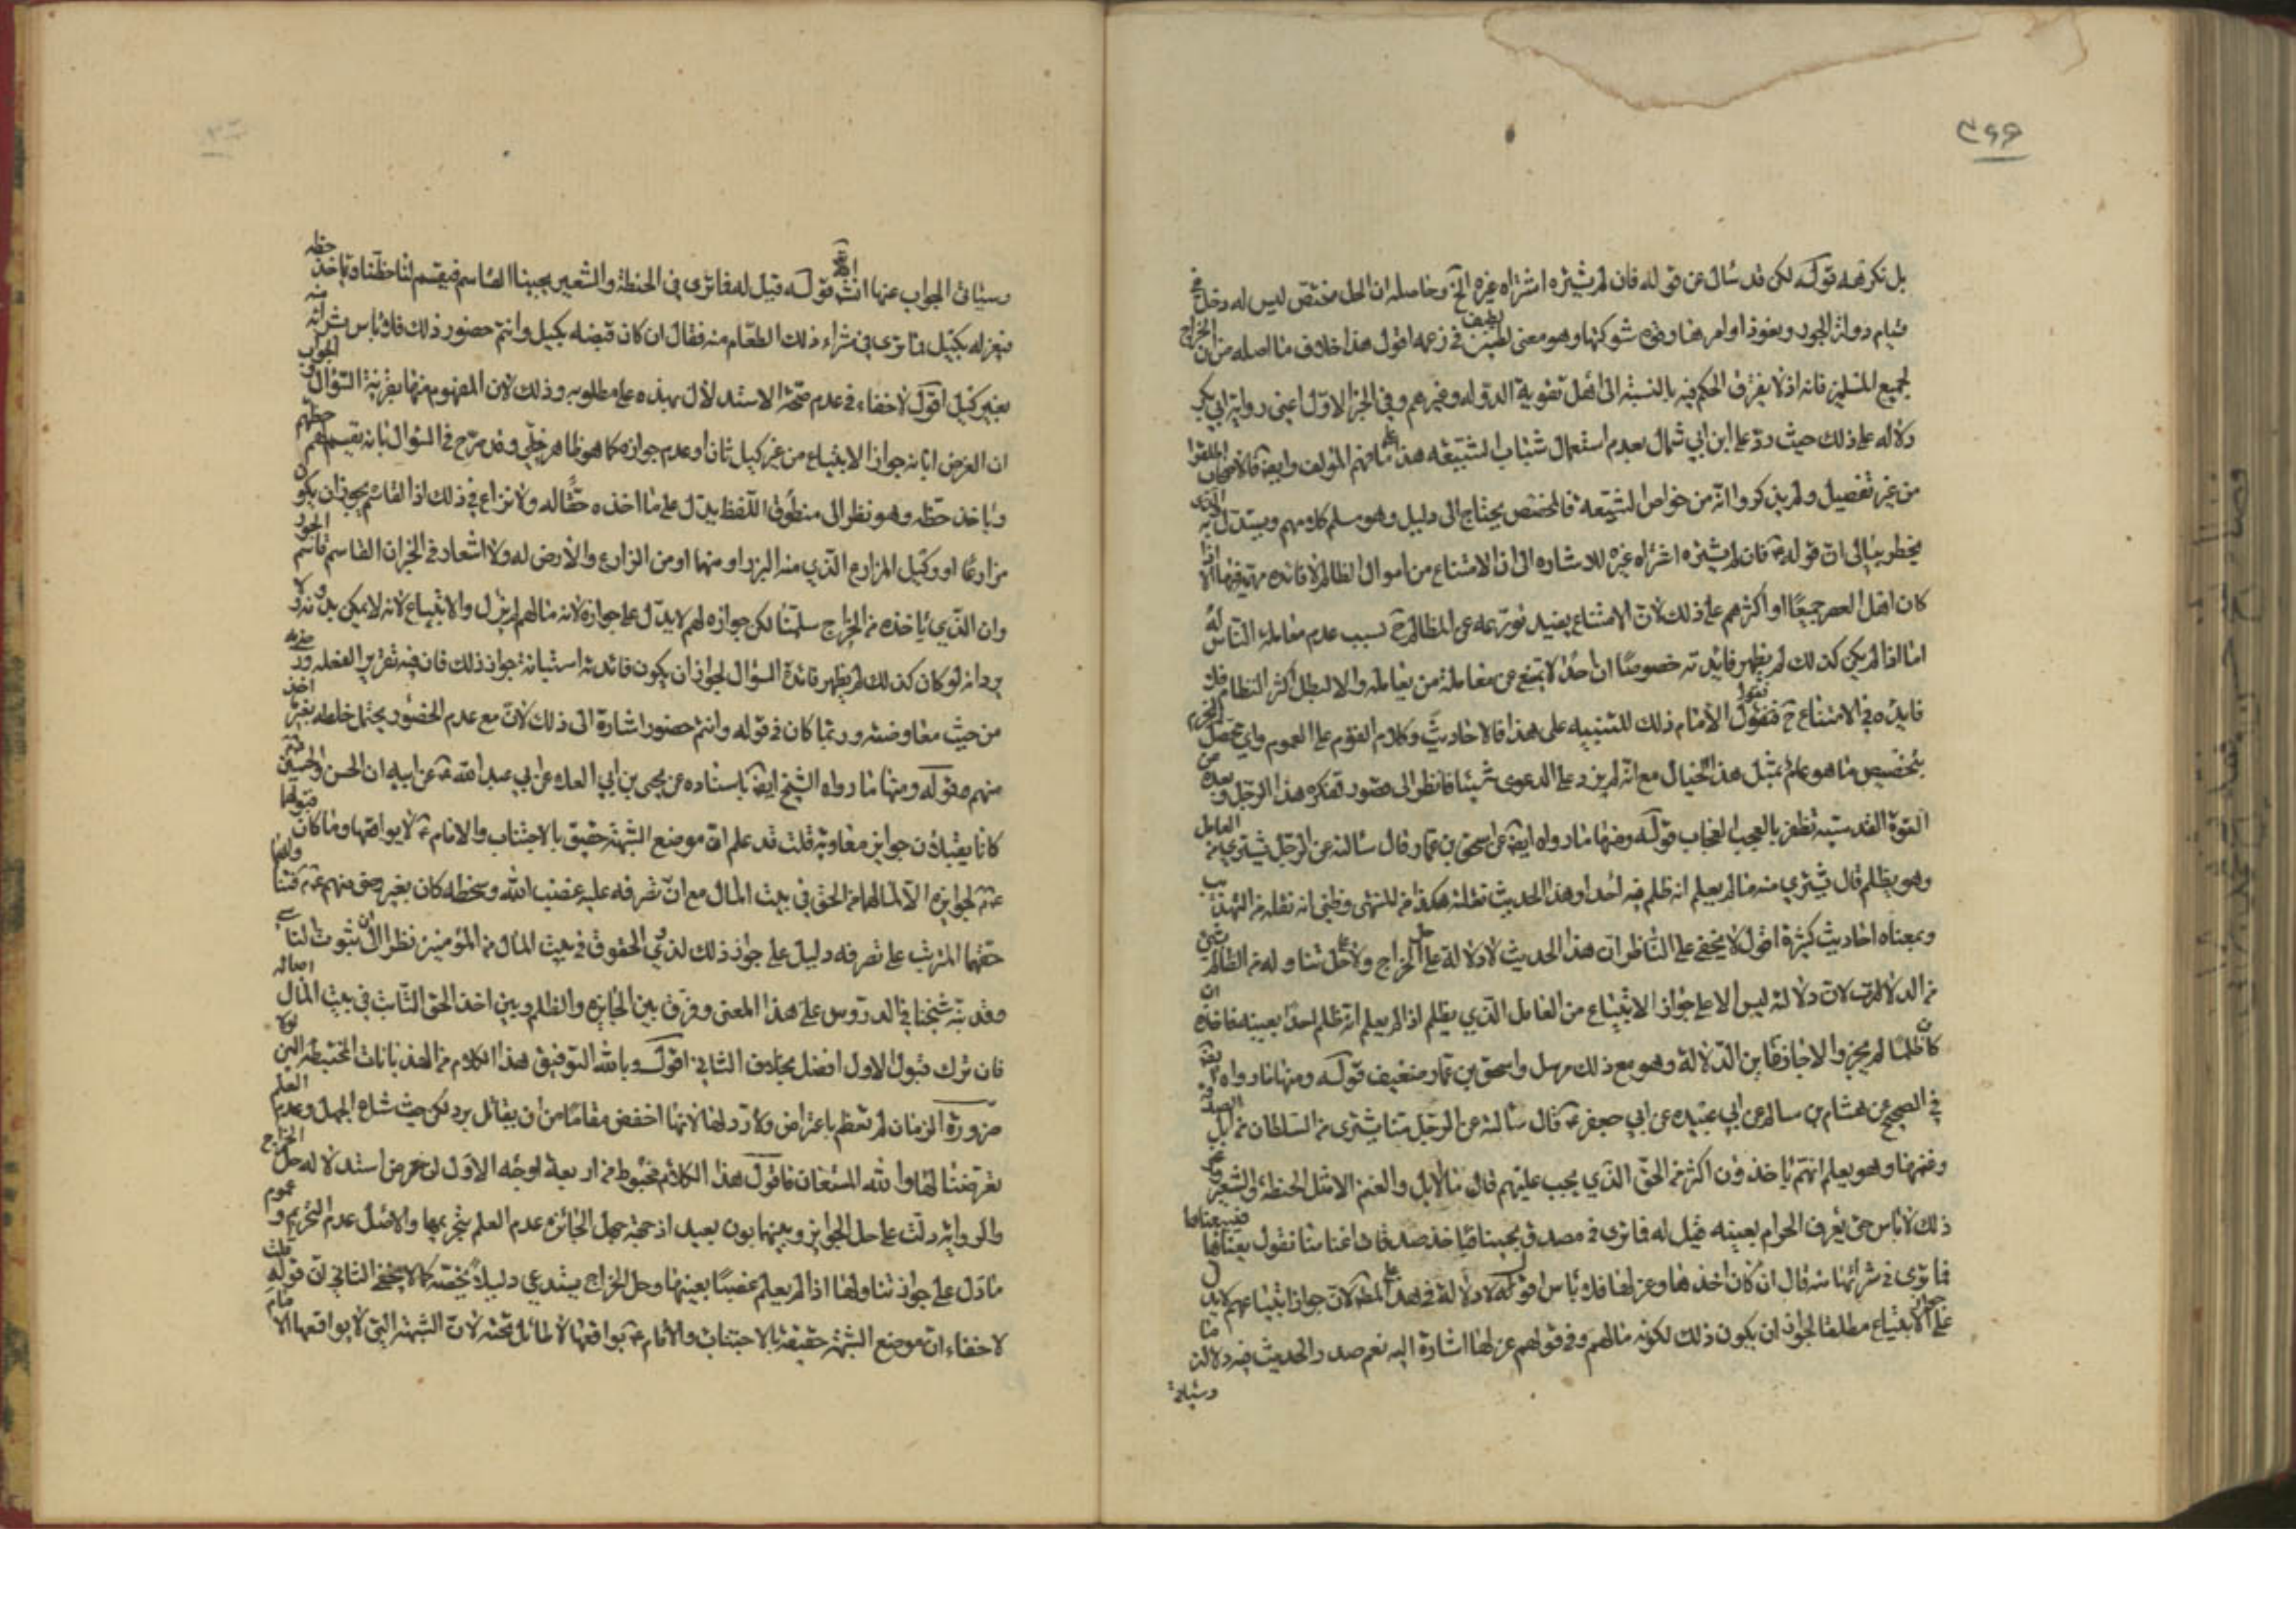 ٣٦٦
بل نكرهه قوله لكن قد سأل عن قوله فان لم يشتره اشتراه غيره الخ وحاصله ان الحل مختص ليس له دخل في
قيام دولة الجور ونفوذ اوامرها وقوة شوكتها وهو معنى لطيف في زعمه اقول هذا خلاف ما اصله من ان الخراج
لجميع المسلمين فانه اذ لا يفترق الحكم فيه بالنسبة الى اهل تقوية الدولة وغيرهم وفي الخبر الاول اعني رواية ابي بكر
دلالة على ذلك حيث رد على ابن ابي شمال بعدم استعمال شباب الشيعة هذا ما فهم المؤلف وايضا فالاصحاب اطلقوا
من غير تفصيل ولم يذكروا انه من خواص الشيعة فالمخصص يحتاج الى دليل وهو مسلم كلامهم ويستدل به الذي
يخطر ببالي ان قوله ع فان لم يشتره اشتراه غيره للاشارة الى ان الامتناع من اموال الظالم لا فائدة مهمة فيها الا اذا
كان اهل العصر جميعا او اكثرهم على ذلك لان الامتناع يفيد تورعه عن المظالم ح بسبب عدم معاملة الناس له
اما اذا لم يكن كذلك لم يظهر فايدته خصوصا ان احدا لا يمتنع من معاملة من يعامله والا لبطل اكثر النظام فلا
فايدة في الامتناع ح فيقول الامام ذلك للتنبيه على هذا فالاحاديث وكلام القوم على العموم واي تخصص
بتخصيص ما هو عام بمثل هذا الخيال مع انه لم يزد على الدعوى شيئا فانظر الى قصور تفكره هذا الرجل و
القوة القدسية تظفر بالعجب العجاب قوله ومنها ما رواه ايضا عن اسحق بن عمار قال سالته عن الرجل يشتري من العامل
وهو يظلم قال يشتري منه ما لم يعلم انه ظلم فيه احدا وهذا الحديث نقلته هكذا من المنتهى وظني انه نقله من التهذيب
وبمعناه احاديث كثيرة اقول لا يخفى على الناظر ان هذا الحديث لا دلالة على حل الخراج ولا على حل تناوله من الظالم بشئ
من الدلالات لان دلالته ليس الا على جواز الابتياع من العامل الذي يظلم اذا لم يعلم انه ظلم احدا بعينه فاخذه ان
كان ظلما لم يجز والا جاز فاين الدلالة وهو مع ذلك مرسل واسحق بن عمار ضعيف قوله ومنها ما رواه ايضا
في الصحيح عن هشام بن سالم عن ابي عبيدة عن ابي جعفر ع قال سالته عن الرجل منا يشتري من السلطان من ابل الصدقة
وغنمها وهو يعلم انهم ياخذون اكثر من الحق الذي يجب عليهم قال ما الابل والغنم الا مثل الحنطة والشعير وغير
ذلك لا باس حتى يعرف الحرام بعينه قيل له فما ترى في مصدق يجيئنا فياخذ صدقات اغنامنا نقول بعناها فيبيعناها
فما ترى في شرائها منه قال ان كان اخذها وعزلها فلا باس اقول لا دلالة في هذا على المط لان جواز ابتياعهم لا يدل
على الابتياع مطلقا لجواز ان يكون ذلك لكونه مالهم وفي قولهم عزلها اشارة اليه نعم صدر الحديث فيه دلالة ما
وسياتي
وسياتي الجواب عنها انش قوله قيل له فما ترى في الحنطة والشعير يجيئنا القاسم فيقسم لنا حظنا وياخذ حظه
فيعزله بكيل فما ترى في شراء ذلك الطعام منه فقال ان كان قبضه بكيل وانتم حضور ذلك فلا باس بشرائه منه
بغير كيل اقول لا خفاء في عدم صحة الاستدلال بهذه على مطلوبه وذلك لان المفهوم منها بقرينة السؤال والجواب
ان الغرض ابانة جواز الابتياع من غير كيل ثان او عدم جوازه كما هو ظاهر جلي وقد صرح في السؤال بانه يقسم لهم حظهم
وياخذ حظه وهو نظرا الى منطوق اللفظ يدل على ما اخذه حقا له ولا نزاع في ذلك اذ القاسم يجوز ان يكون
مزارعا او وكيل المزارع الذي منه البزر او منهما او من الزارع والارض له ولا اشعار في الخبر ان القاسم قاسم الجور
وان الذي ياخذه من الخراج سلمنا لكن جوازه لهم لا يدل على جوازه لانه مالهم لم يزل والابتياع لانه لا يمكن بدونه ولا
يرد انه لو كان كذلك لم يظهر فائدة السؤال لجواز ان يكون فائدته استبانة جواز ذلك فان فيه تقرير الفعله
من حيث معاوضته وربما كان في قوله وانتم حضور اشارة الى ذلك لان مع عدم الحضور يحتمل خلطه بغير ما اخذ
منهم قوله ومنها ما رواه الشيخ ايضا باسناده عن يحيى بن ابي العلا عن ابي عبد الله ع عن ابيه ان الحسن والحسين ع
كانا يقبلان جوايز معاوية قلت قد علم ان موضع الشبهة حقيق بالاجتناب والامام ع لا يواقعها وما كان قبولهما
ع لجوايزه الا لما لهما من الحق في بيت المال مع ان تصرفه عليه غضب الله وسخطه كان بغير رضى منهم ع فتناولهما
حقهما المترتب على تصرفه دليل على جواز ذلك لذوي الحقوق في بيت المال من المؤمنين نظرا الى ثبوت التاسي
وقد نبه شيخنا في الدروس على هذا المعنى وفرق بين الجايزة والظلم وبين اخذ الحق الثابت في بيت المال اصالة
فان ترك قبول الاول افضل بخلاف الثاني اقول وبالله التوفيق هذا الكلام من الهذيانات المختبطه التي لولا
ضرورة الزمان لم تعظم باعتراض ولا رد لها لانها اخفض مقاما من ان يقابل برد لكن حيث شاع الجهل وعدم العلم
تعرضنا لها والله المستعان فاقول هذا الكلام مخبوط من اربعة اوجه الاول ان غرض استدلاله حل الخراج
والرواية دلت على حل الجوايز وبينهما بون بعيد اذ جهة حل الجائزة عدم العلم بتحريمها والاصل عدم التحريم وعموم
ما دل على جواز تناولها اذا لم يعلم غصبا بعينها وحل الخراج يستدعي دليلا يخصه كما لا يخفى الثاني ان قوله قلت
لا خفاء ان موضع الشبهة حقيقة بالاجتناب والامام ع لا يواقعها لا طائل تحته لان الشبهة التي لا يواقعها الامام